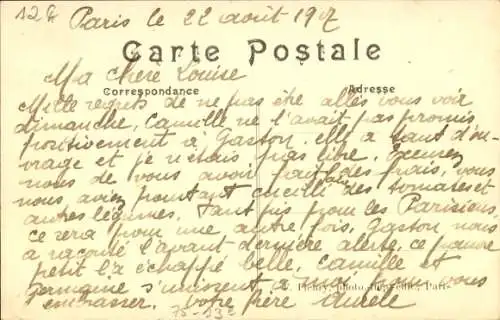 12 €
Paris le 22 août 1917
Carte Postale
Ma chère Louise
Correspondance
Adresse
Mille regrets de ne pas être allés vous voir
dimanche, Camille ne l'avait pas promis
positivement à Gaston, elle a tant d'ou-
vrage et je n'étais pas libre. Excusez
nous de vous avoir fait des frais, vous
nous aviez pourtant cueilli des tomates et
autres légumes. Tant pis pour les Parisiens
ce sera pour une autre fois. Gaston nous
a raconté l'avant dernière alerte, ce pauvre
petit l'a échappé belle, Camille et
Germaine s'unissent à moi pour vous
embrasser. Votre frère Aurèle
Paris
75-13e